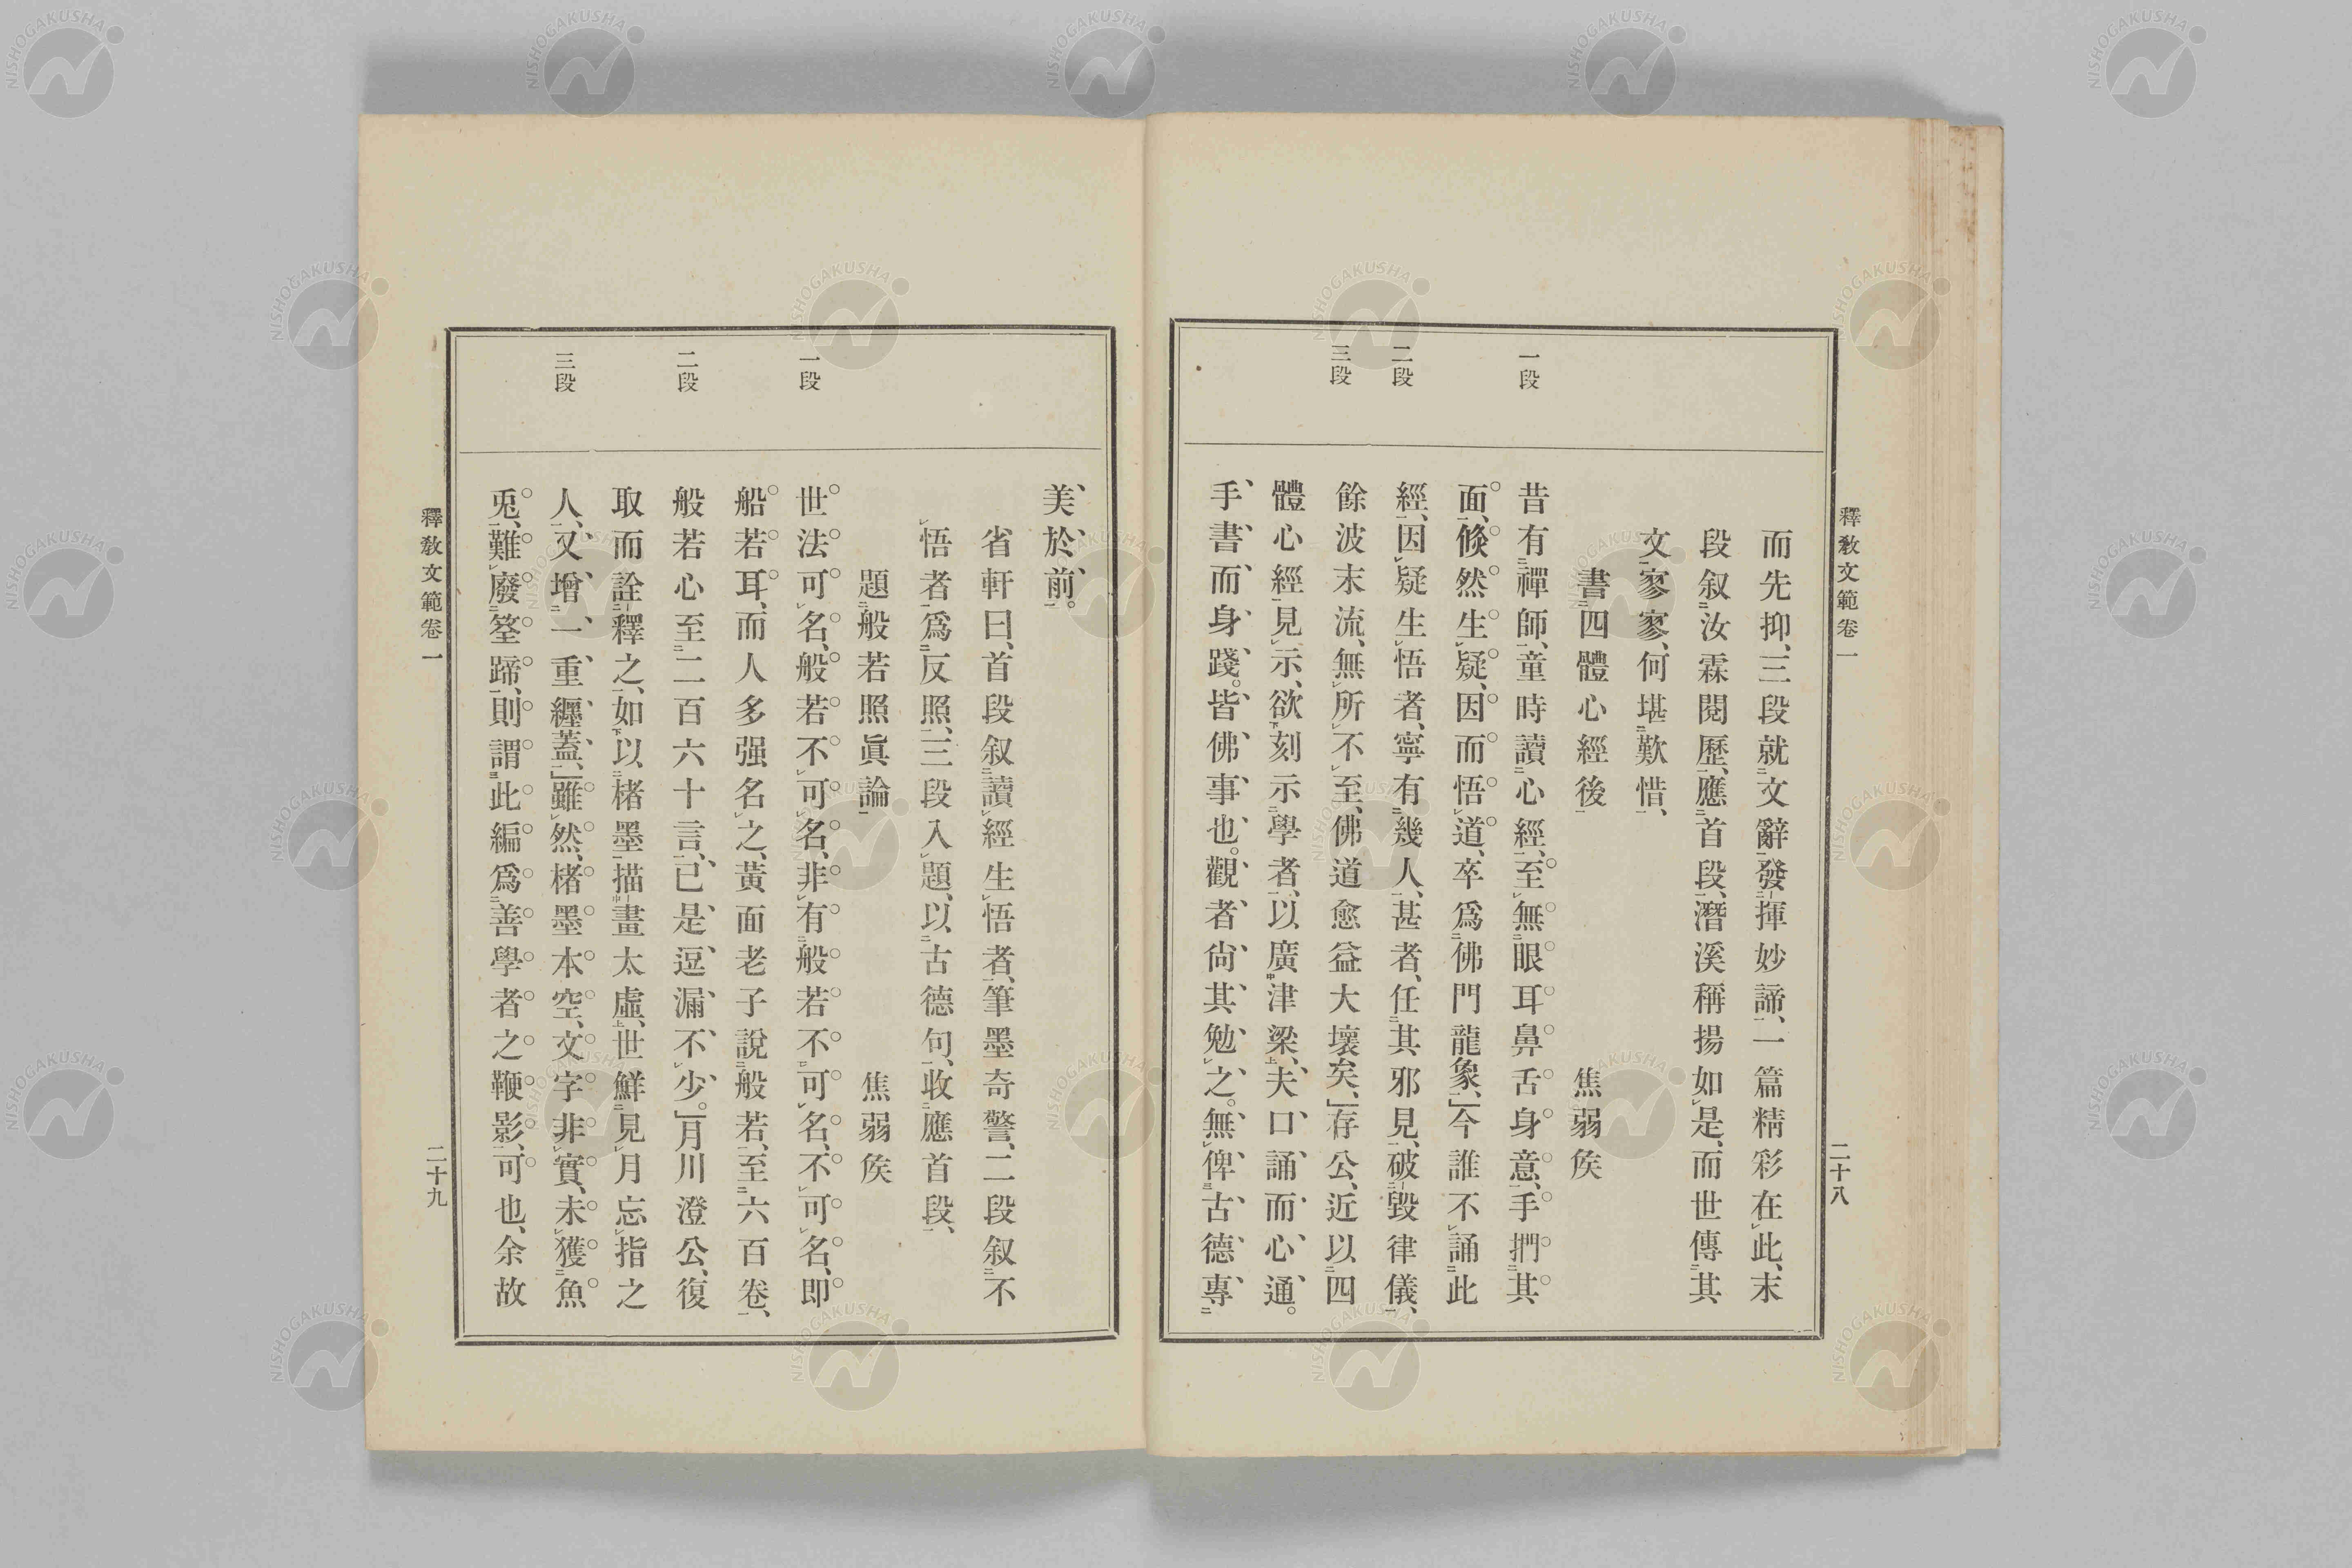 釋敎文範卷一
二十八
一段
二段
三段
而先抑、三段就文辭發揮妙諦、一篇精彩在此、末
段叙汝霖閱歷、應首段、潛溪稱揚如是、而世傳其
文寥寥、何堪歎惜、
書四體心經後 焦弱矦
昔有禪師、童時讀心經、至無眼耳鼻舌身意、手捫其
面、倏然生疑、因而悟道、卒爲佛門龍象、」今誰不誦此
經、因疑生悟者、寧有幾人、甚者、任其邪見、破毀律儀、
餘波末流、無所不至、佛道愈益大壞矣、」存公、近以四
體心經見示、欲刻示學者、以廣津梁、夫口誦而心通。
手書而身踐。皆佛事也。觀者尙其勉之。無俾古德專
美於前。
省軒曰、首段叙讀經生悟者、筆墨奇警、二段叙不
悟者、爲反照、三段入題、以古德句、收應首段、
題般若照眞論 焦弱矦
世法可名、般若不可名、非有般若不可名、不可名、即
船若耳、而人多强名之、黃面老子說般若、至六百卷、
般若心至二百六十言、已是逗漏不少。」月川澄公、復
取而詮釋之、如以楮墨描畫太虛、世鮮見月忘指之
人、又增一重纒蓋、」雖然、楮墨本空、文字非實、未獲魚
兎、難廢筌蹄、則謂此編爲善學者之鞭影、可也、余故
一段
二段
三段
釋敎文範卷一
二十九